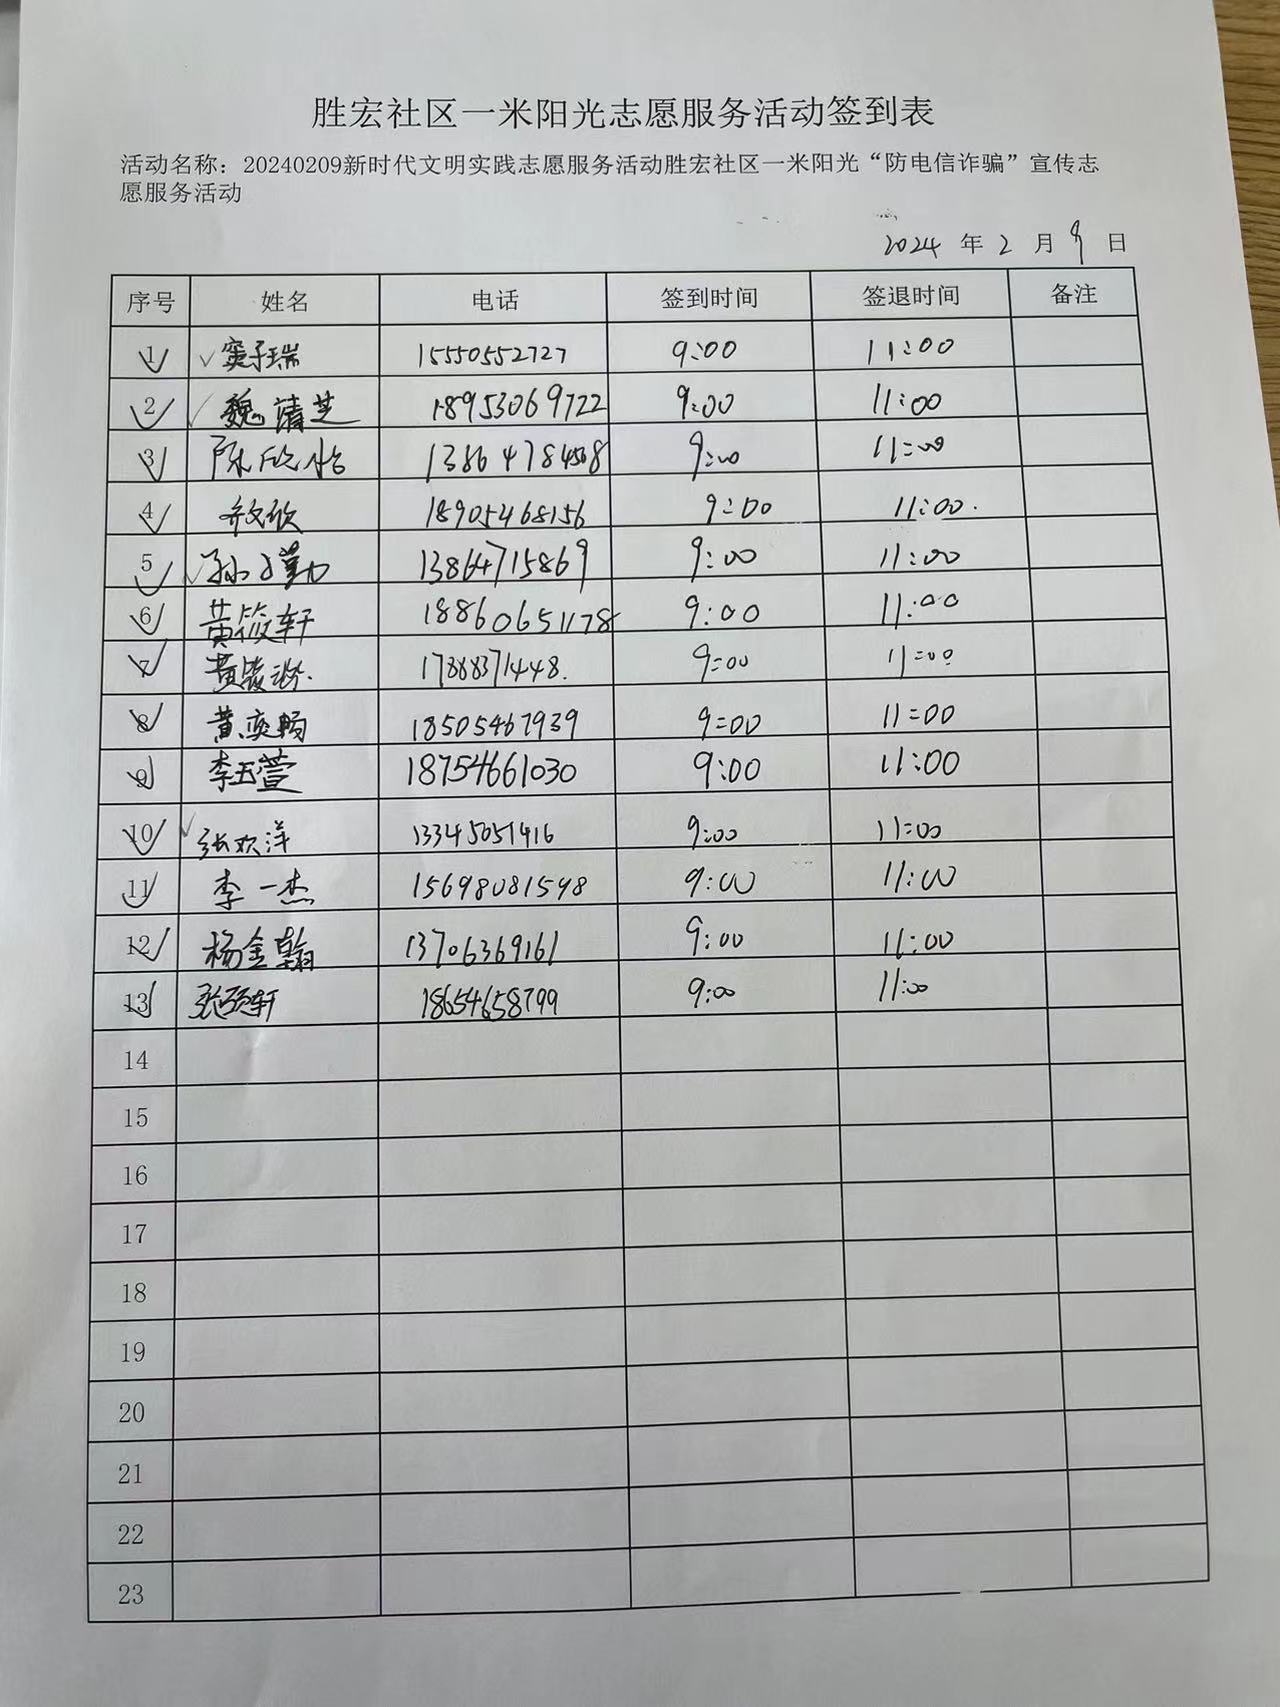 胜宏社区一米阳光志愿服务活动签到表
活动名称：20240209新时代文明实践志愿服务活动胜宏社区一米阳光“防电信诈骗”宣传志
愿服务活动
2024 年 2 月 9 日
序号 姓名 电话 签到时间 签退时间 备注
1 窦子瑞 15550552727 9:00 11:00
2 魏靖芝 18953069722 9:00 11:00
3 陈欣怡 13864784568 9:00 11:00
4 18905468156 9:00 11:00.
5 孙子勤 13864715869 9:00 11:00
6 黄筱轩 18860651178 9:00 11:00
7 17888371448. 9:00 11:00
8 黄奕畅 18505467939 9:00 11:00
9 李玉萱 18754661030 9:00 11:00
10 张欢洋 13345051416 9:00 11:00
11 李一杰 15698081598 9:00 11:00
12 杨金翰 13706369161 9:00 11:00
13 18654658799 9:00 11:00
14
15
16
17
18
19
20
21
22
23